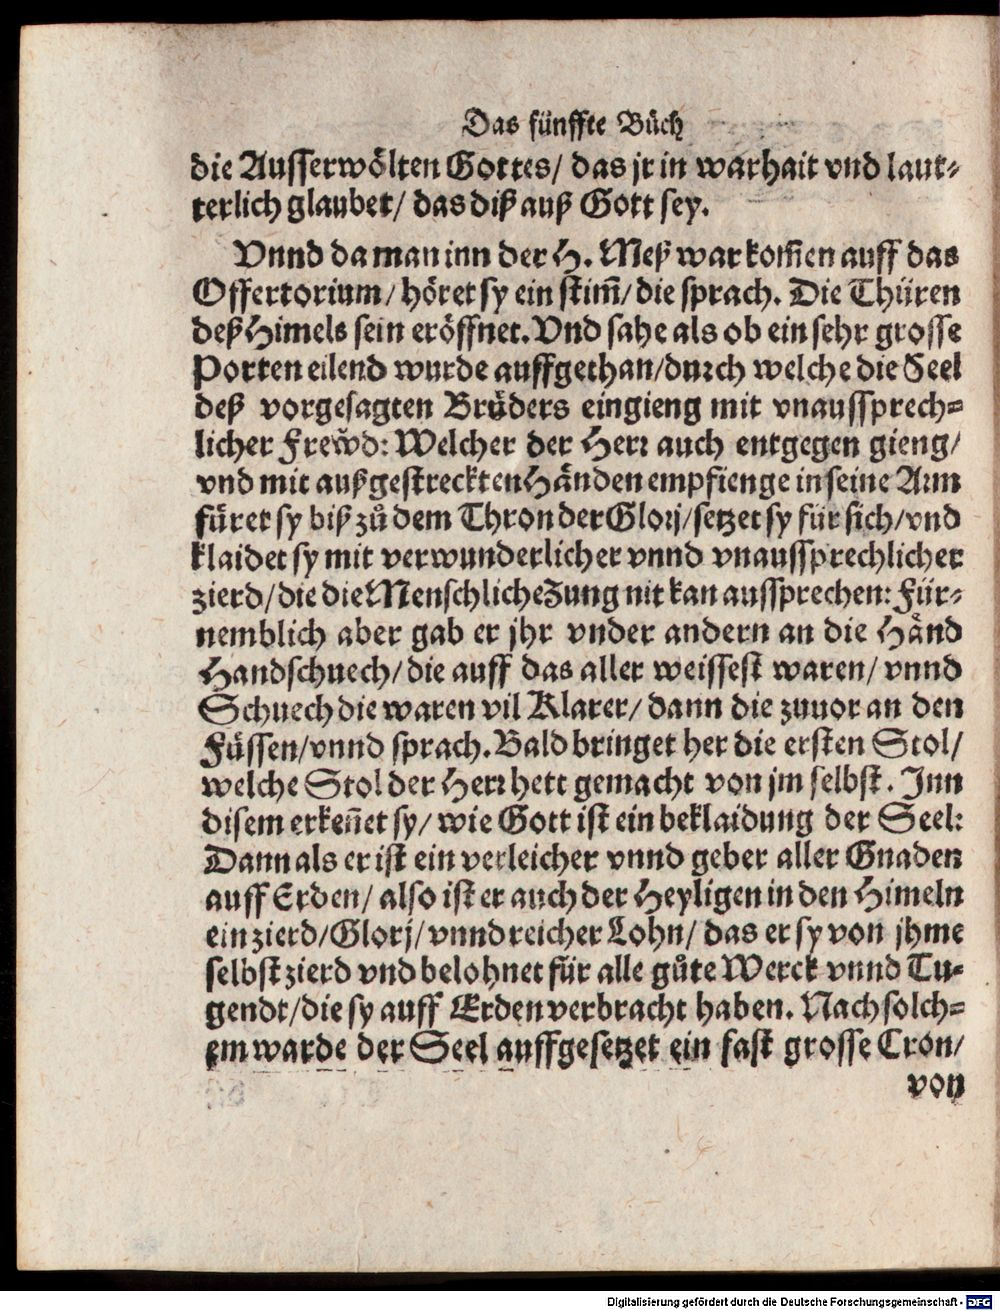 Das fünffte Bůch
die Ausserwölten Gottes/ das jr in warhait vnd laut-
terlich glaubet/ das diß auß Gott sey.
Vnnd da man inn der H. Meß war kom̃en auff das
Offertorium/ höret sy ein stim̃/ die sprach. Die Thüren
deß Himels sein eröffnet. Vnd sahe als ob ein sehr grosse
Porten eilend wurde auffgethan/durch welche die Seel
deß vorgesagten Brůders eingieng mit vnaussprech-
licher Frewd: Welcher der Herr auch entgegen gieng/
vnd mit außgestreckten Händen empfienge in seine Arm
füret sy biß zů dem Thron der Glorj/setzet sy für sich/vnd
klaidet sy mit verwunderlicher vnnd vnaussprechlicher
zierd/die die Menschliche Zung nit kan aussprechen: Für-
nemblich aber gab er jhr vnder andern an die Händ
Handschuech/die auff das aller weissest waren/ vnnd
Schuech die waren vil Klarer/ dann die zuuor an den
Füssen/vnnd sprach. Bald bringet her die ersten Stol/
welche Stol der Herr hett gemacht von jm selbst. Inn
disem erkeñet sy/ wie Gott ist ein beklaidung der Seel:
Dann als er ist ein verleicher vnnd geber aller Gnaden
auff Erden/ also ist er auch der Heyligen in den Himeln
ein zierd/Glorj/vnnd reicher Lohn/ das er sy von jhme
selbst zierd vnd belohnet für alle gůte Werck vnnd Tu-
gendt/die sy auff Erden verbracht haben. Nach solch-
em warde der Seel auffgesetzet ein fast grosse Cron/
von
Digitalisierung gefördert durch die Deutsche Forschungsgemeinschaft - DFG